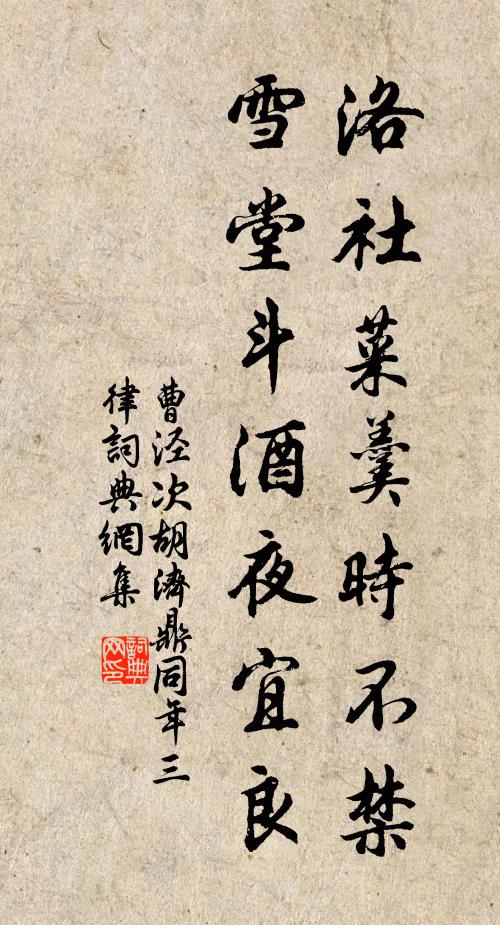 洛社菜羹時不禁
雪堂斗酒夜宜良
曹涇次胡濟鼎同年三
律詞典網集
詞典
网印